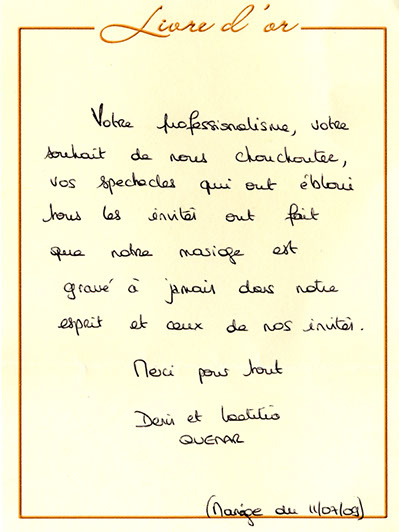 Livre d'or
Votre professionalisme, votre
souhait de nous chouchouter,
vos spectacles qui ont ébloui
tous les invités ont fait
que notre mariage est
gravé à jamais dans notre
esprit et ceux de nos invités.
Merci pour tout
Denis et Laetitia
QUENAR
(Mariage du 11/07/09)